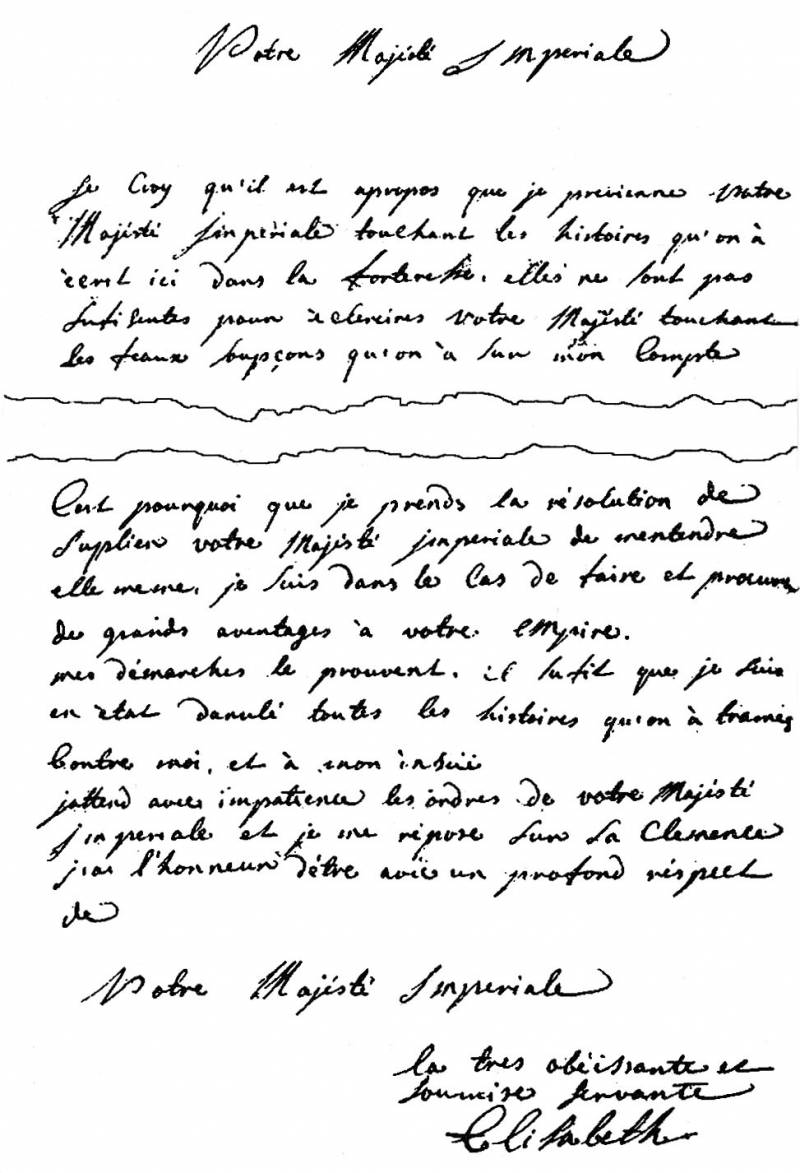 Votre Majésté Imperiale
Je Croy qu'il est apropos que je previenne votre
Majésté Imperiale touchant les histoires qu'on à
ècrit ici dans la forteresse. elles ne sont pas
sufisentes pour votre Majésté touchant
les feaux soupçons qu'on à sur mon Compte
Cest pourquoi que je prends la résolution de
suplier votre Majésté imperiale de mentendre
elle meme, je suis dans le Cas de faire et procurer
de grands aventages à votre empire.
mes démarches le prouvent. il sufit que je suis
en ètat danulé toutes les histoires qu'on à tramés
Contre moi, et à mon insüe
jattend avec impatience les ordres de votre Majésté
imperiale et je me répose sur sa Clemence
j'ai l'honneur d'être avec un profond réspect
de
Votre Majésté Imperiale
la tres obéissante et
soumise servante
Elisabeth